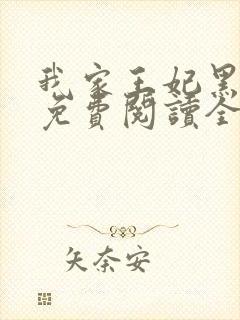 我家王妃黑
免費閱讀全
矢奈安